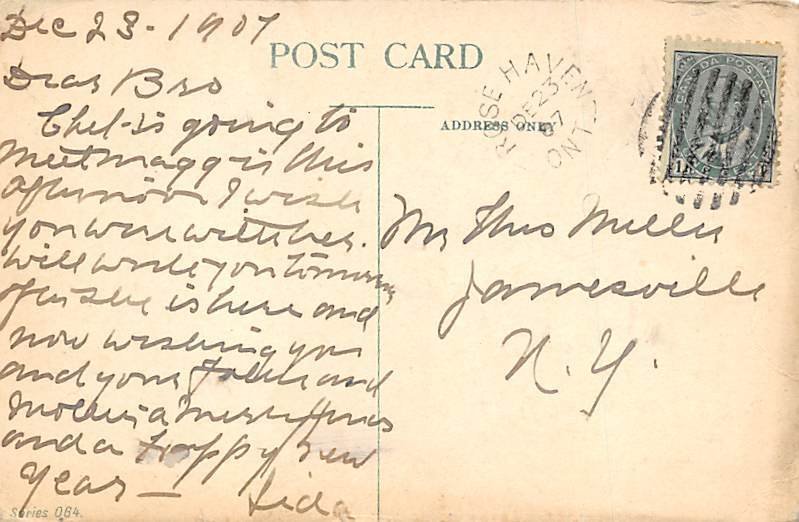 Dec 23 - 1907
POST CARD
Dear Bro
Chel is going to
meet maggis this
afternoon I wish
you were with her.
will write you tomorrow
after she is here and
now wishing you
and your folks and
a Merry Xmas
and a Happy New
Year —
Series 064.
ROSE HAVEN
DE 23
07
ONT
ADDRESS ONLY
CANADA POSTAGE
Mr Thos Miller
Jamesville
N. Y.